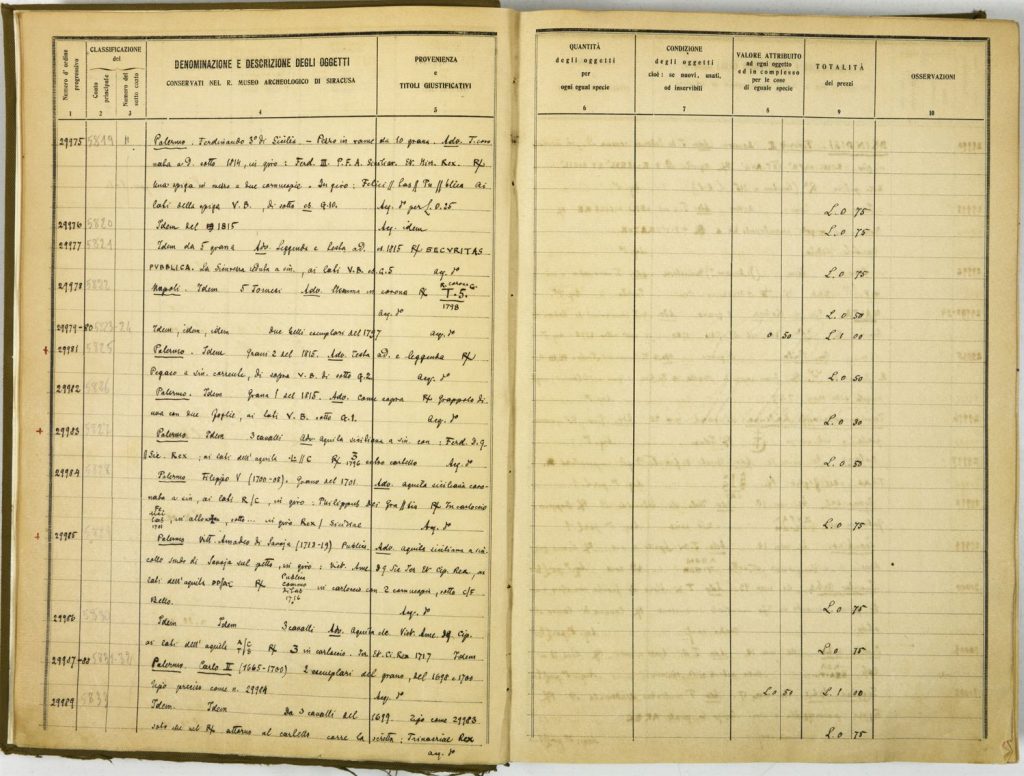 Numero d'ordine progressivo
CLASSIFICAZIONE
del
Conto principale
Numero del sotto conto
DENOMINAZIONE E DESCRIZIONE DEGLI OGGETTI
CONSERVATI NEL R. MUSEO ARCHEOLOGICO DI SIRACUSA
PROVENIENZA
e
TITOLI GIUSTIFICATIVI
1 2 3 4 5
29975 5819 Palermo. Ferdinando 3° di Sicilia - Pezzo in rame da 10 grana. Adv. T. coro
nata a D. sotto 1814, in giro: Ferd. III. P.F.A. Siciliar. Et. Hier. Rex.
una spiga in mezzo a due cornucopie. In giro: Felici // tas // Pu // blica ai
lati della spiga V.B., di sotto G.10. Acq. d° per L. 0.25
29976 5820 Idem del 1815 Acq. idem
29977 5821 Idem da 5 grana Adv. Leggenda e testa a D. 1815 SECURITAS
PUBBLICA. La Sicurezza a sin., ai lati V.B. G.5 acq. d°
29978 5822 Napoli. Idem 5 Tornesi Adv. in corona T. 5.
1798
acq. d°
29979-80 5823-24 Idem, idem, idem Due belli esemplari del 1797 acq. d°
29981 5825 Palermo. Idem Grani 2 del 1815. Adv. Testa a D. e leggenda
Pegaso a sin. corrente, di sopra V.B. di sotto G.2. Acq. d°
29982 5826 Palermo. Idem Grana 1 del 1815. Adv. Come sopra Grappolo di
uva con due foglie, ai lati V.B. sotto G.1. Acq. d°
29983 5827 Palermo Idem 3 cavalli Adv. aquila siciliana a sin. con: Ferd. D.g.
Sic. Rex; ai lati dell'aquila 3 1796 entro cartello Acq. d°
29984 5828 Palermo Filippo V (1700-08). Grano del 1701. Adv. aquila siciliana coro
nata a sin, ai lati R/C, in giro: Philippus Dei Gra // tia In cartoccio
sotto ... in giro Rex / Siciliae Acq. d°
29985 5829 Palermo Vitt. Amadeo di Savoja (1713-19) Publica. Adv. aquila siciliana a sin
collo scudo di Savoja sul petto, in giro: Vict. Ame. D.g Sic Ier Et. Cip. Rex, ai
lati dell'aquila Publica Commoditas 1716 in cartoccio con 2 cornucopie, sotto c/F
Bello. Acq. d°
29986 5830 Idem Idem 3 cavalli Adv. aquila etc. Vict. Ame. Dg. Cip.
ai lati dell'aquila 3 in cartoccio. Ier. Et. Ci. Rex 1717 Idem
29987-88 5831-32 Palermo. Carlo II (1665-1700) 2 esemplari del grano, del 1698 e 1700
Tipo preciso come n. 29984 Acq. d°
29989 5833 Idem. Idem Da 3 cavalli del 1699. Tipo come 29983
solo che nel attorno al cartello corre la scritta: Trinacriae Rex
acq. d°
QUANTITÀ
degli oggetti
per
ogni egual specie
CONDIZIONE
degli oggetti
cioè: se nuovi, usati,
od inservibili
VALORE ATTRIBUITO
ad ogni oggetto
ed in complesso
per le cose
di eguale specie
TOTALITÀ
dei prezzi
OSSERVAZIONI
6 7 8 9 10
L. 0 75
L. 0 75
L. 0 75
L. 0 50
0 50 L. 1 00
L. 0 50
L. 0 30
L. 0 50
L. 0 75
L. 0 75
L. 0 75
L. 0 50 L. 1 00
L. 0 75